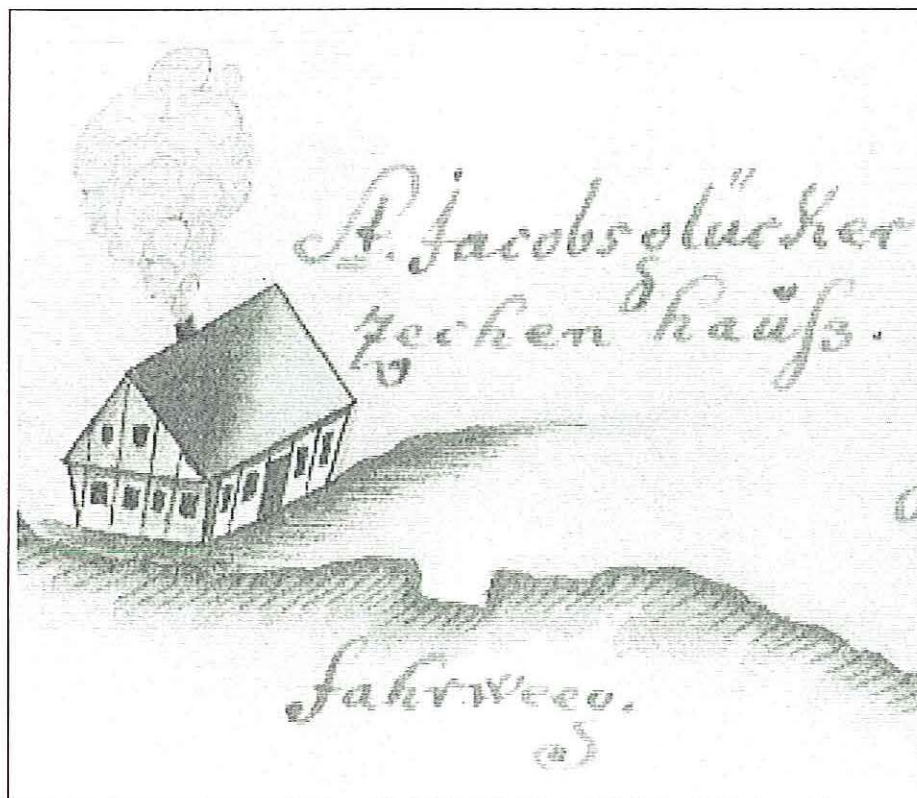 A. Jacobsglücker
zechen hauß.
fahrweeg.